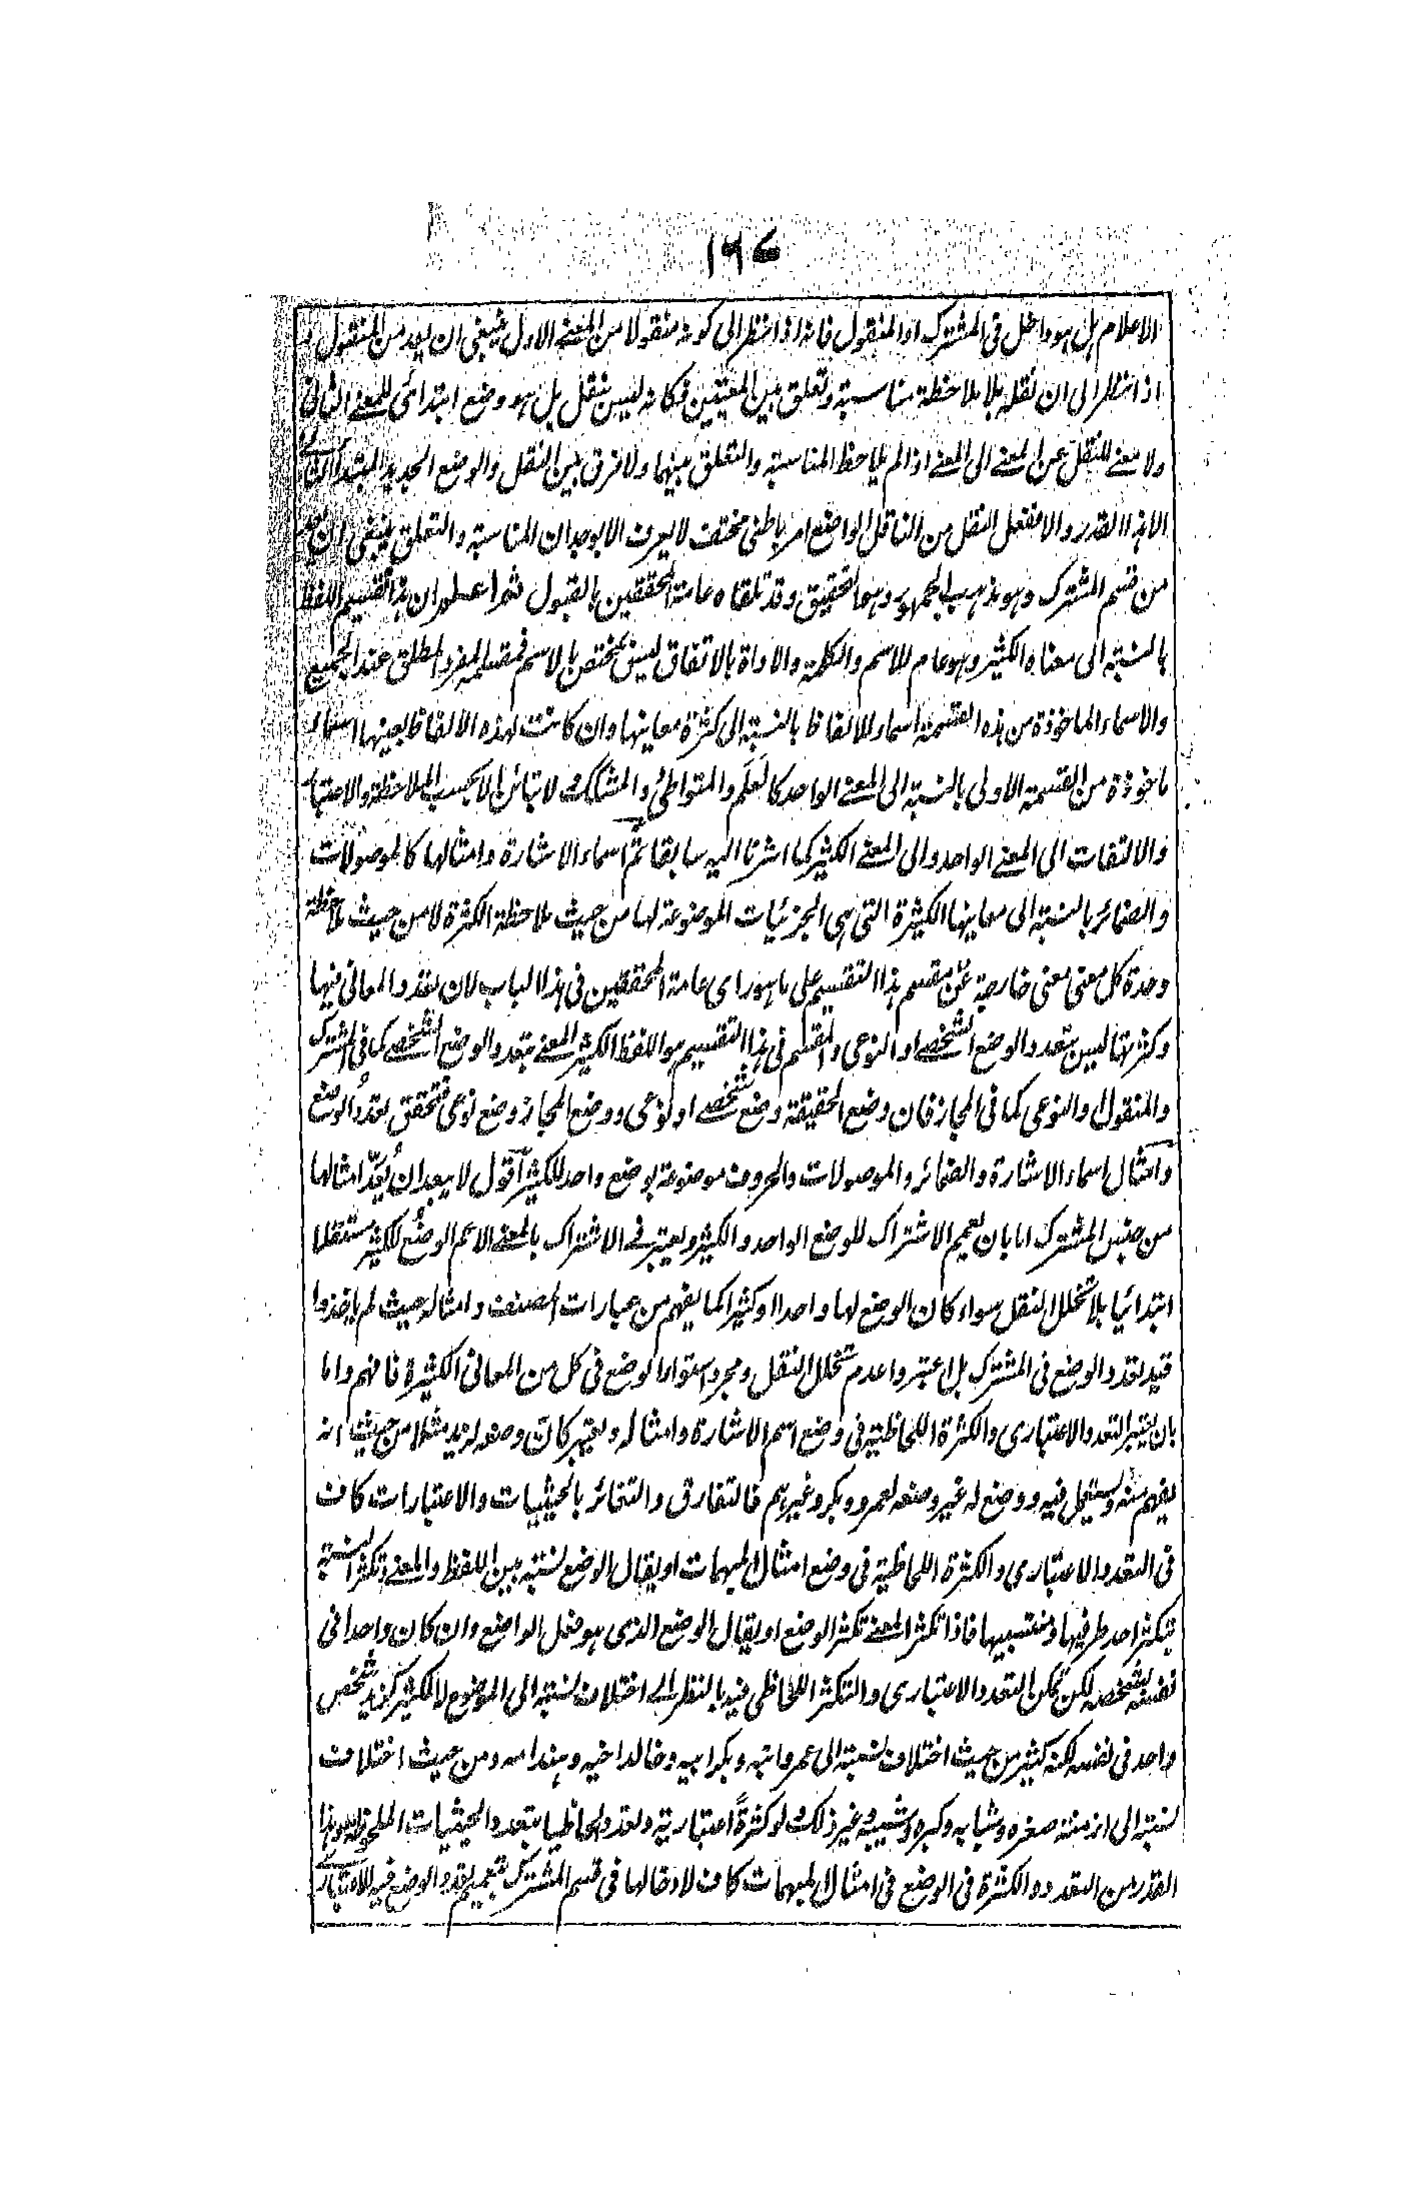 ١٦٧
الاعلام بل هو داخل فى المشترك او المنقول فانه اذا نظر الى كونه منقولا من المعنى الاول ينبغى ان يعد من المنقول و
اذا نظر الى ان نقله بلا ملاحظة مناسبة وتعلق بين المعنيين فكانه ليس بنقل بل هو وضع ابتدائى للمعنى الثانى
ولا معنى للنقل عن المعنى الى المعنى اذا لم يلاحظ المناسبة والتعلق بينهما ولا فرق بين النقل والوضع الجديد المبتدأ
الا هذا القدر والا ففعل النقل من الناقل الواضع امر باطنى مختف لا يعرف الا بوجدان المناسبة والتعلق ينبغى ان يعد
من قسم المشترك وهو مذهب الجمهور وهو التحقيق وقد تلقاه عامة المحققين بالقبول ثم اعلم ان هذا تقسيم اللفظ
بالنسبة الى معناه الكثير وهو عام للاسم والكلمة والاداة بالاتفاق ليس بمختص بالاسم فمقسمه المفرد المطلق عند الجميع
والاسماء الماخوذة من هذه القسمة اسماء للالفاظ بالنسبة الى كثرة معانيها وان كانت لهذه الالفاظ بعينها اسماء
ماخوذة من القسمة الاولى بالنسبة الى المعنى الواحد كالعَلَم والمتواطئ والمشكك لا تباين الا بحسب الملاحظة والاعتبار
والالتفات الى المعنى الواحد والى المعنى الكثير كما اشرنا اليه سابقا ثم اسماء الاشارة وامثالها كالموصولات
والضمائر بالنسبة الى معانيها الكثيرة التى هى الجزئيات الموضوعة لها من حيث ملاحظة الكثرة لا من حيث ملاحظة
وحدة كل معنى معنى خارجة عن مقسم هذا التقسيم على ما هو راى عامة المحققين فى هذا الباب لان تعدد المعانى فيها
وكثرتها ليس بتعدد الوضع الشخصى او النوعى والمقسم فى هذا التقسيم هو اللفظ الكثير المعنى بتعدد الوضع الشخصى كما فى المشترك
والمنقول والنوعى كما فى المجاز فان وضع الحقيقة وضع شخصى او نوعى ووضع المجاز وضع نوعى فتحقق تعدد الوضع
وامثال اسماء الاشارة والضمائر والموصولات والحروف موضوعة بوضع واحد للكثير اقول لا يبعد ان يُعَدّ امثالها
من المشترك اما بان يعمم الاشتراك للوضع الواحد والكثير ويعتبر فى الاشتراك بالمعنى الاعم الوضع للكثير مستقلا
ابتدائيا بلا تخلل النقل سواء كان الوضع لها واحدا او كثيرا كما يفهم من عبارات المصنف وامثاله حيث لم ياخذوا
قيد تعدد الوضع فى المشترك بل اعتبروا عدم تخلل النقل ومجرد استواء الوضع فى كل من المعانى الكثيرة فافهم واما
بان يعتبر التعدد الاعتبارى والكثرة اللحاظية فى وضع اسم الاشارة وامثاله ويعتبر كانّ وضعه لزيد مثلا من حيث انه
يفهم منه ويستعمل فيه ووضع له غير وضعه لعمرو وبكر وغيرهم فالتفارق والتغائر بالحيثيات والاعتبارات كاف
فى التعدد الاعتبارى والكثرة اللحاظية فى وضع امثال المبهمات او يقال الوضع نسبته بين اللفظ والمعنى وتكثر النسبة
بتكثر احد طرفيها ومنتسبيها فاذا تكثر المعنى تكثر الوضع او يقال الوضع الذى هو فعل الواضع وان كان واحدا فى
نفسه بشخصه لكن يمكن التعدد الاعتبارى والتكثر اللحاظى فيه بالنظر الى اختلاف نسبته الى الموضوع له الكثير كزيد شخص
واحد فى نفسه لكنه كثير من حيث اختلاف نسبته الى عمرو ابنه وبكر ابيه وخالد اخيه وهند امه ومن حيث اختلاف
نسبته الى ازمنته صغره وشبابه وكبره وشيبه وغير ذلك ولو كثرةً اعتبارية وتعدد لحاظيا بتعدد الحيثيات الملحوظة وهذا
القدر من التعدد والكثرة فى الوضع فى امثال المبهمات كاف لادخالها فى قسم المشترك بتعميم تعدد الوضع فيه للاعتبارى